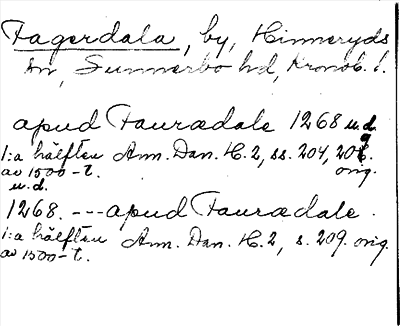 Fagerdala, by, Hinneryds
sn, Sunnerbo hd, Kronob. l.
apud Faurædale 1268 u.d.
1:a hälften Ann. Dan. H. 2, ss. 204, 209.
av 1500-t. orig.
u.d.
1268. --- apud Faurædale.
1:a hälften Ann. Dan. H. 2, s. 209. orig.
av 1500-t.